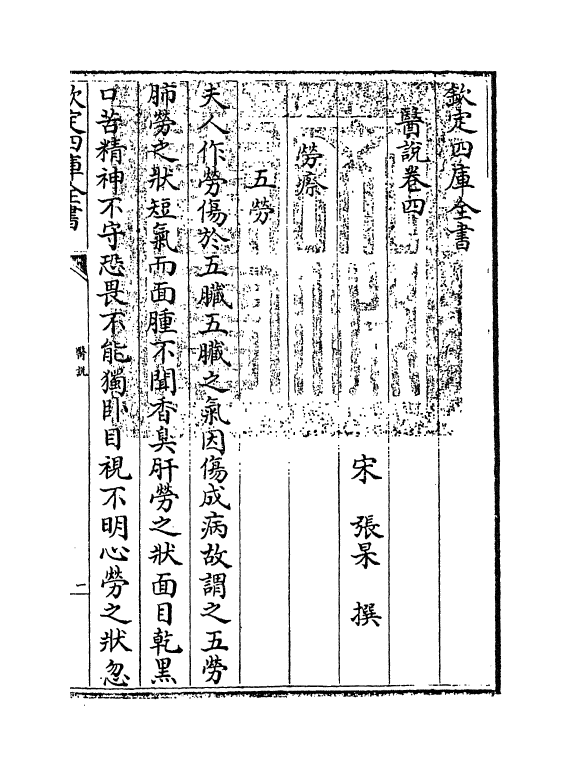 欽定四庫全書
醫說卷四
宋 張杲 撰
勞瘵
五勞
夫人作勞傷於五臟五臟之氣因傷成病故謂之五勞
肺勞之狀短氣而面腫不聞香臭肝勞之狀面目乾黑
口苦精神不守恐畏不能獨卧目視不明心勞之狀忽
欽定四庫全書
醫說
二